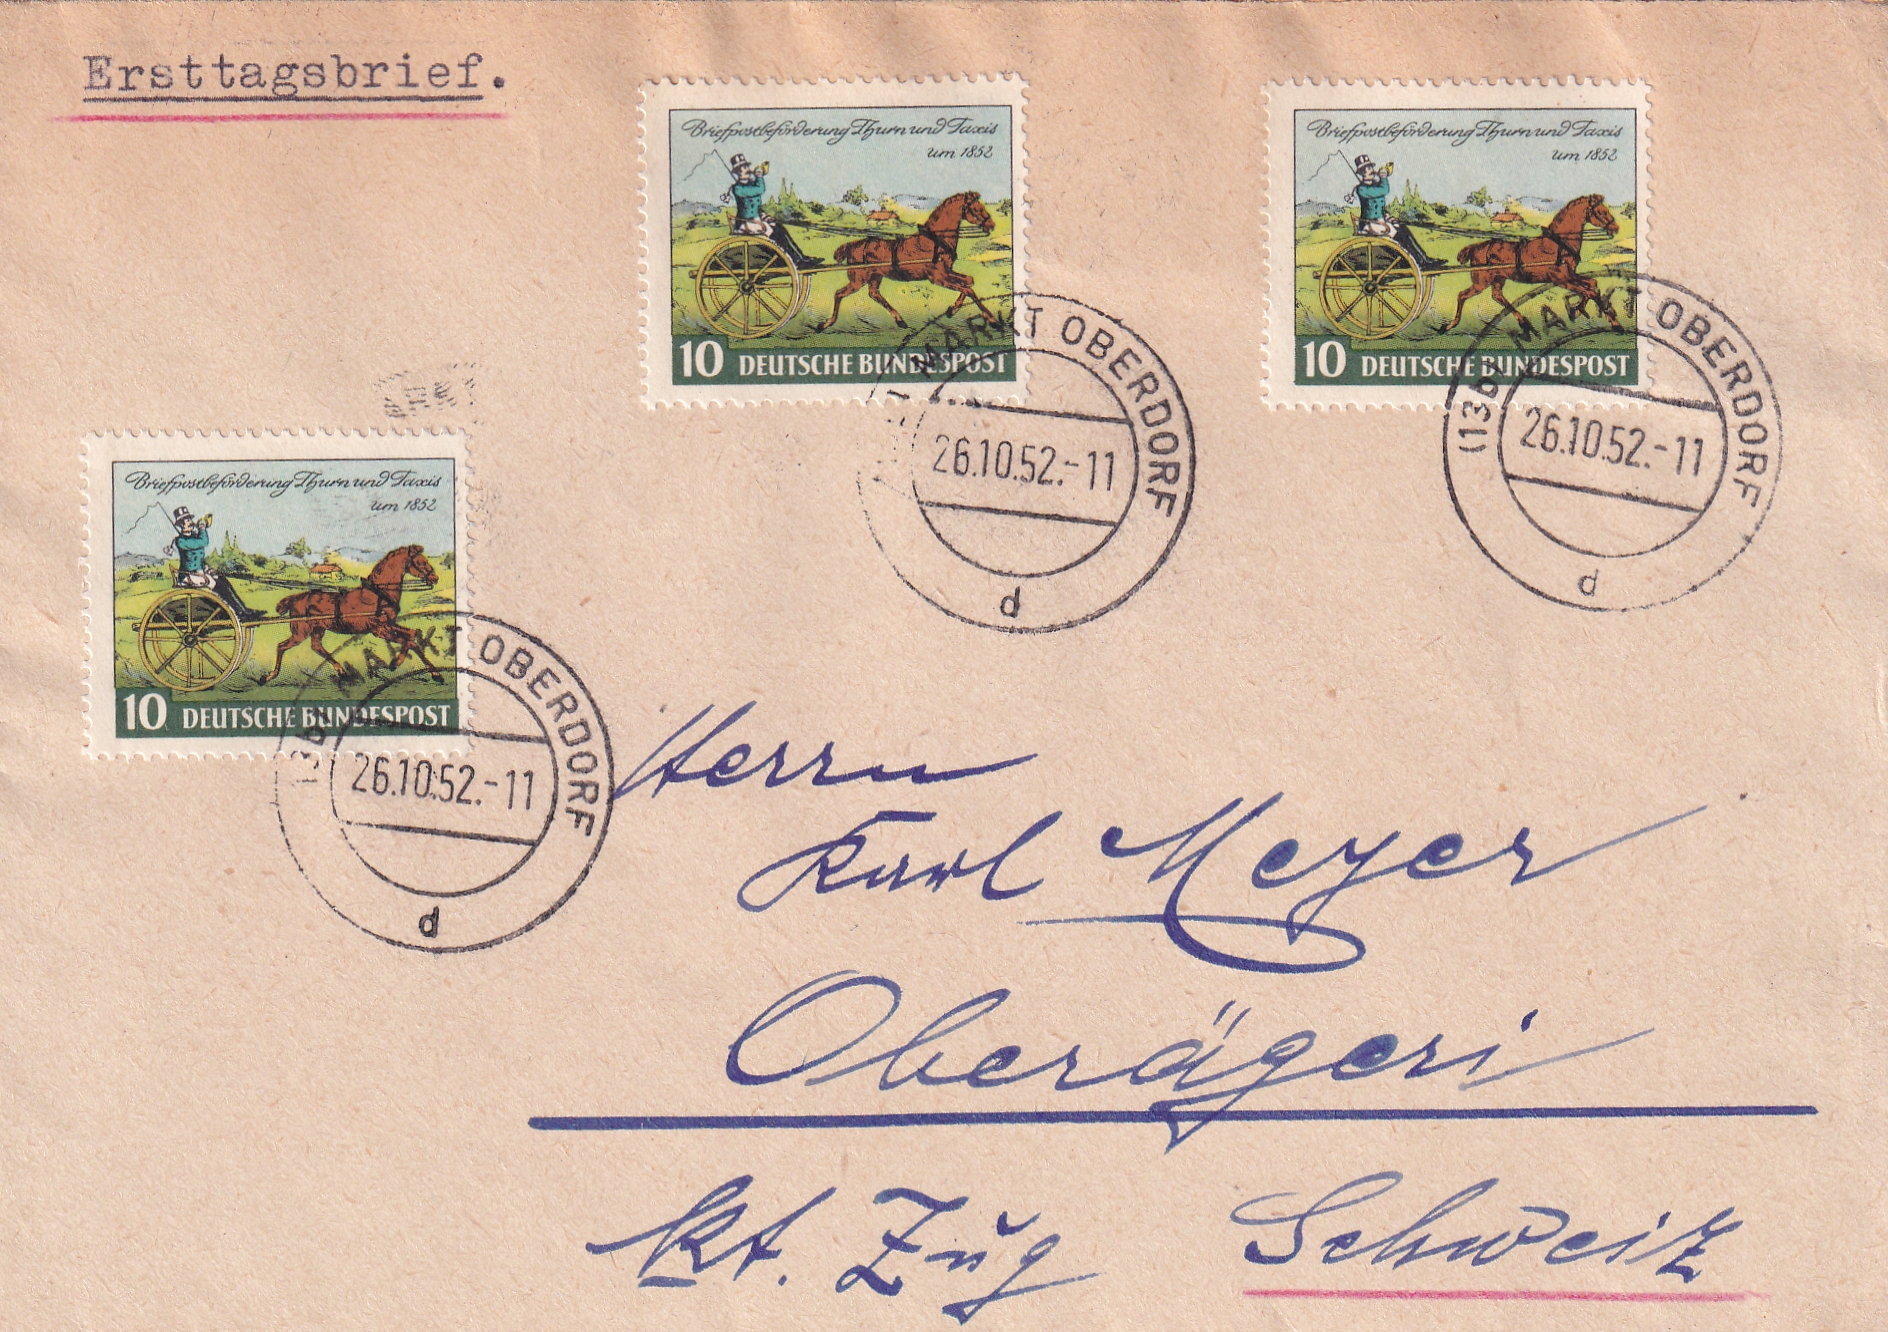 Ersttagsbrief.
Briefpostbeförderung Thurn und Taxis
um 1852
10 DEUTSCHE BUNDESPOST
MARKT OBERDORF
26.10.52.-11
d
Briefpostbeförderung Thurn und Taxis
um 1852
10 DEUTSCHE BUNDESPOST
(13b) MARKT OBERDORF
26.10.52.-11
d
Briefpostbeförderung Thurn und Taxis
um 1852
10 DEUTSCHE BUNDESPOST
(13b) MARKT OBERDORF
26.10.52.-11
d
Herrn
Karl Meyer
Oberägeri
Kt. Zug Schweiz